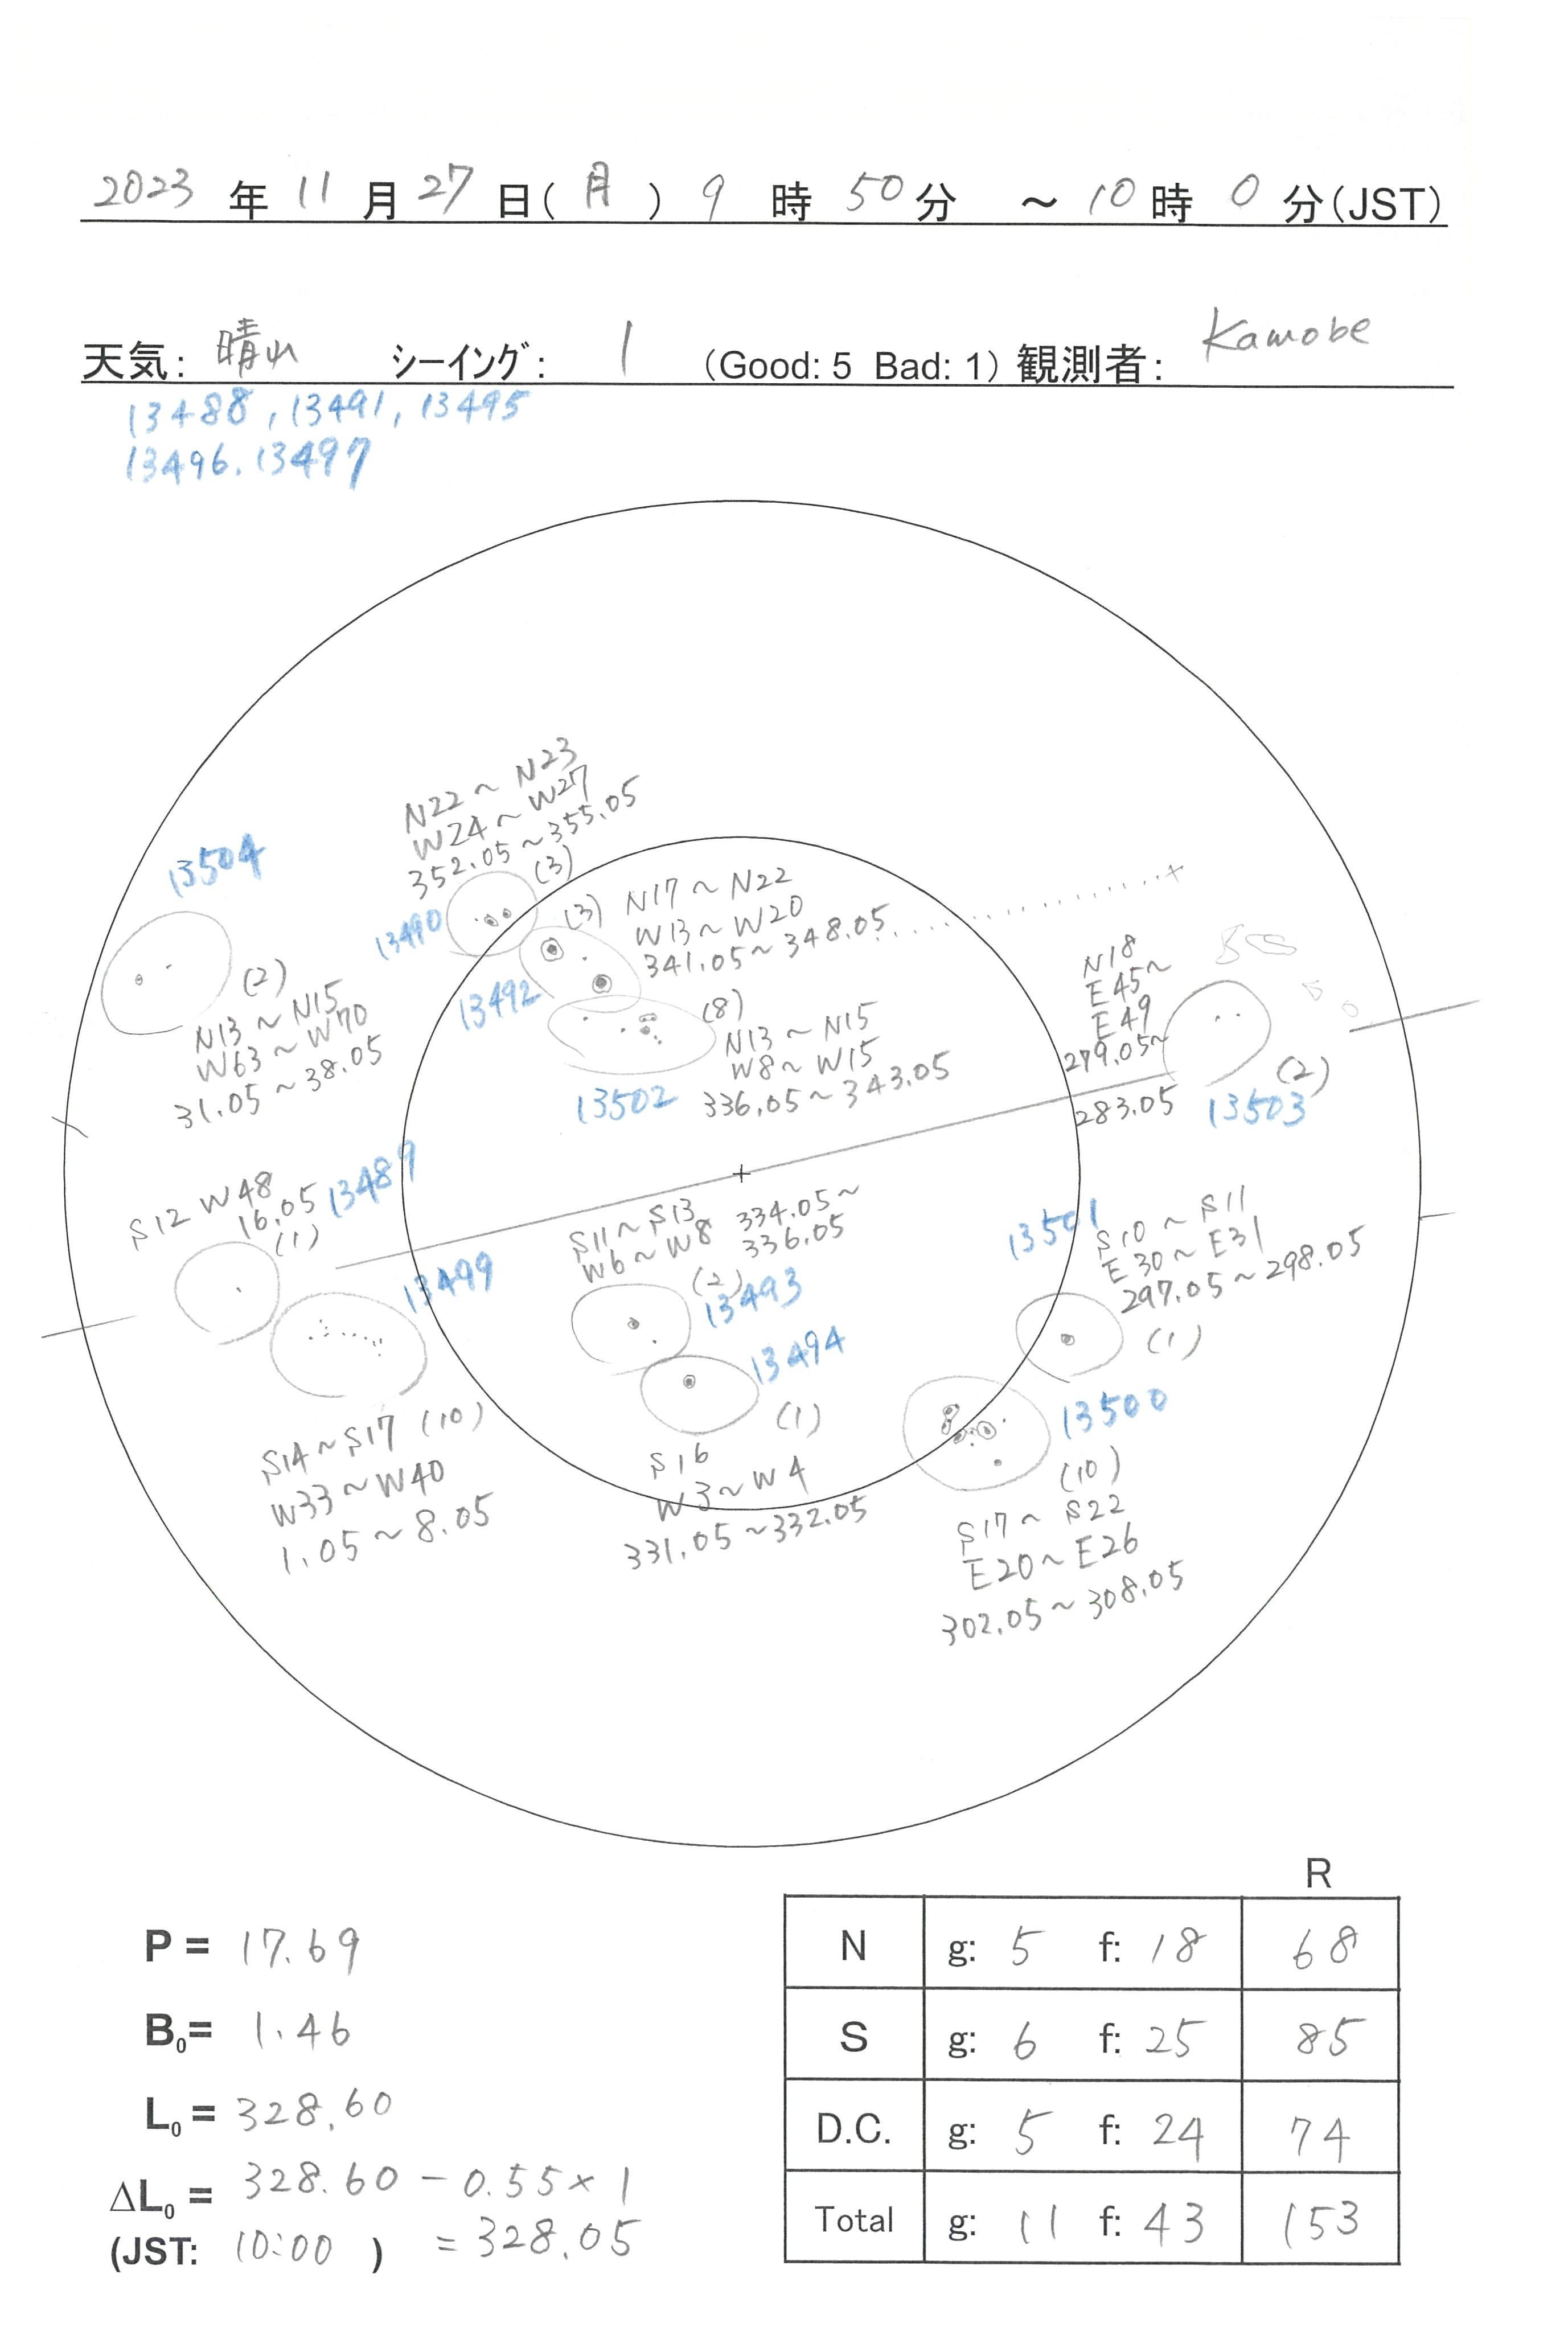 2023 年 11 月 27 日(月) 9 時 50 分 ～10 時 0 分(JST)
天気: 晴れ シーイング: 1 (Good: 5 Bad: 1) 観測者: Kamobe
13488, 13491, 13495
13496. 13497
N22～N23
W24～W27
352.05～355.05
(3)
13490
13504
(2)
N13～N15
W63～W70
31.05～38.05
(3)
N17～N22
W13～W20
341.05～348.05
13492
(8)
N13～N15
W8～W15
336.05～343.05
13502
N18
E45～
E49
279.05～
283.05
(2)
13503
S12 W48
16.05
(1)
13489
13499
S14～S17 (10)
W33～W40
1.05～8.05
S11～S13 334.05～
W6～W8 336.05
(2)
13493
13494
(1)
S16
W3～W4
331.05～332.05
13501
S10～S11
E30～E31
297.05～298.05
(1)
13500
(10)
S17～S22
E20～E26
302.05～308.05
P = 17.69
B₀= 1.46
L₀= 328.60
ΔL₀= 328.60 - 0.55×1
(JST: 10:00 ) = 328.05
R
N g: 5 f: 18 68
S g: 6 f: 25 85
D.C. g: 5 f: 24 74
Total g: 11 f: 43 153